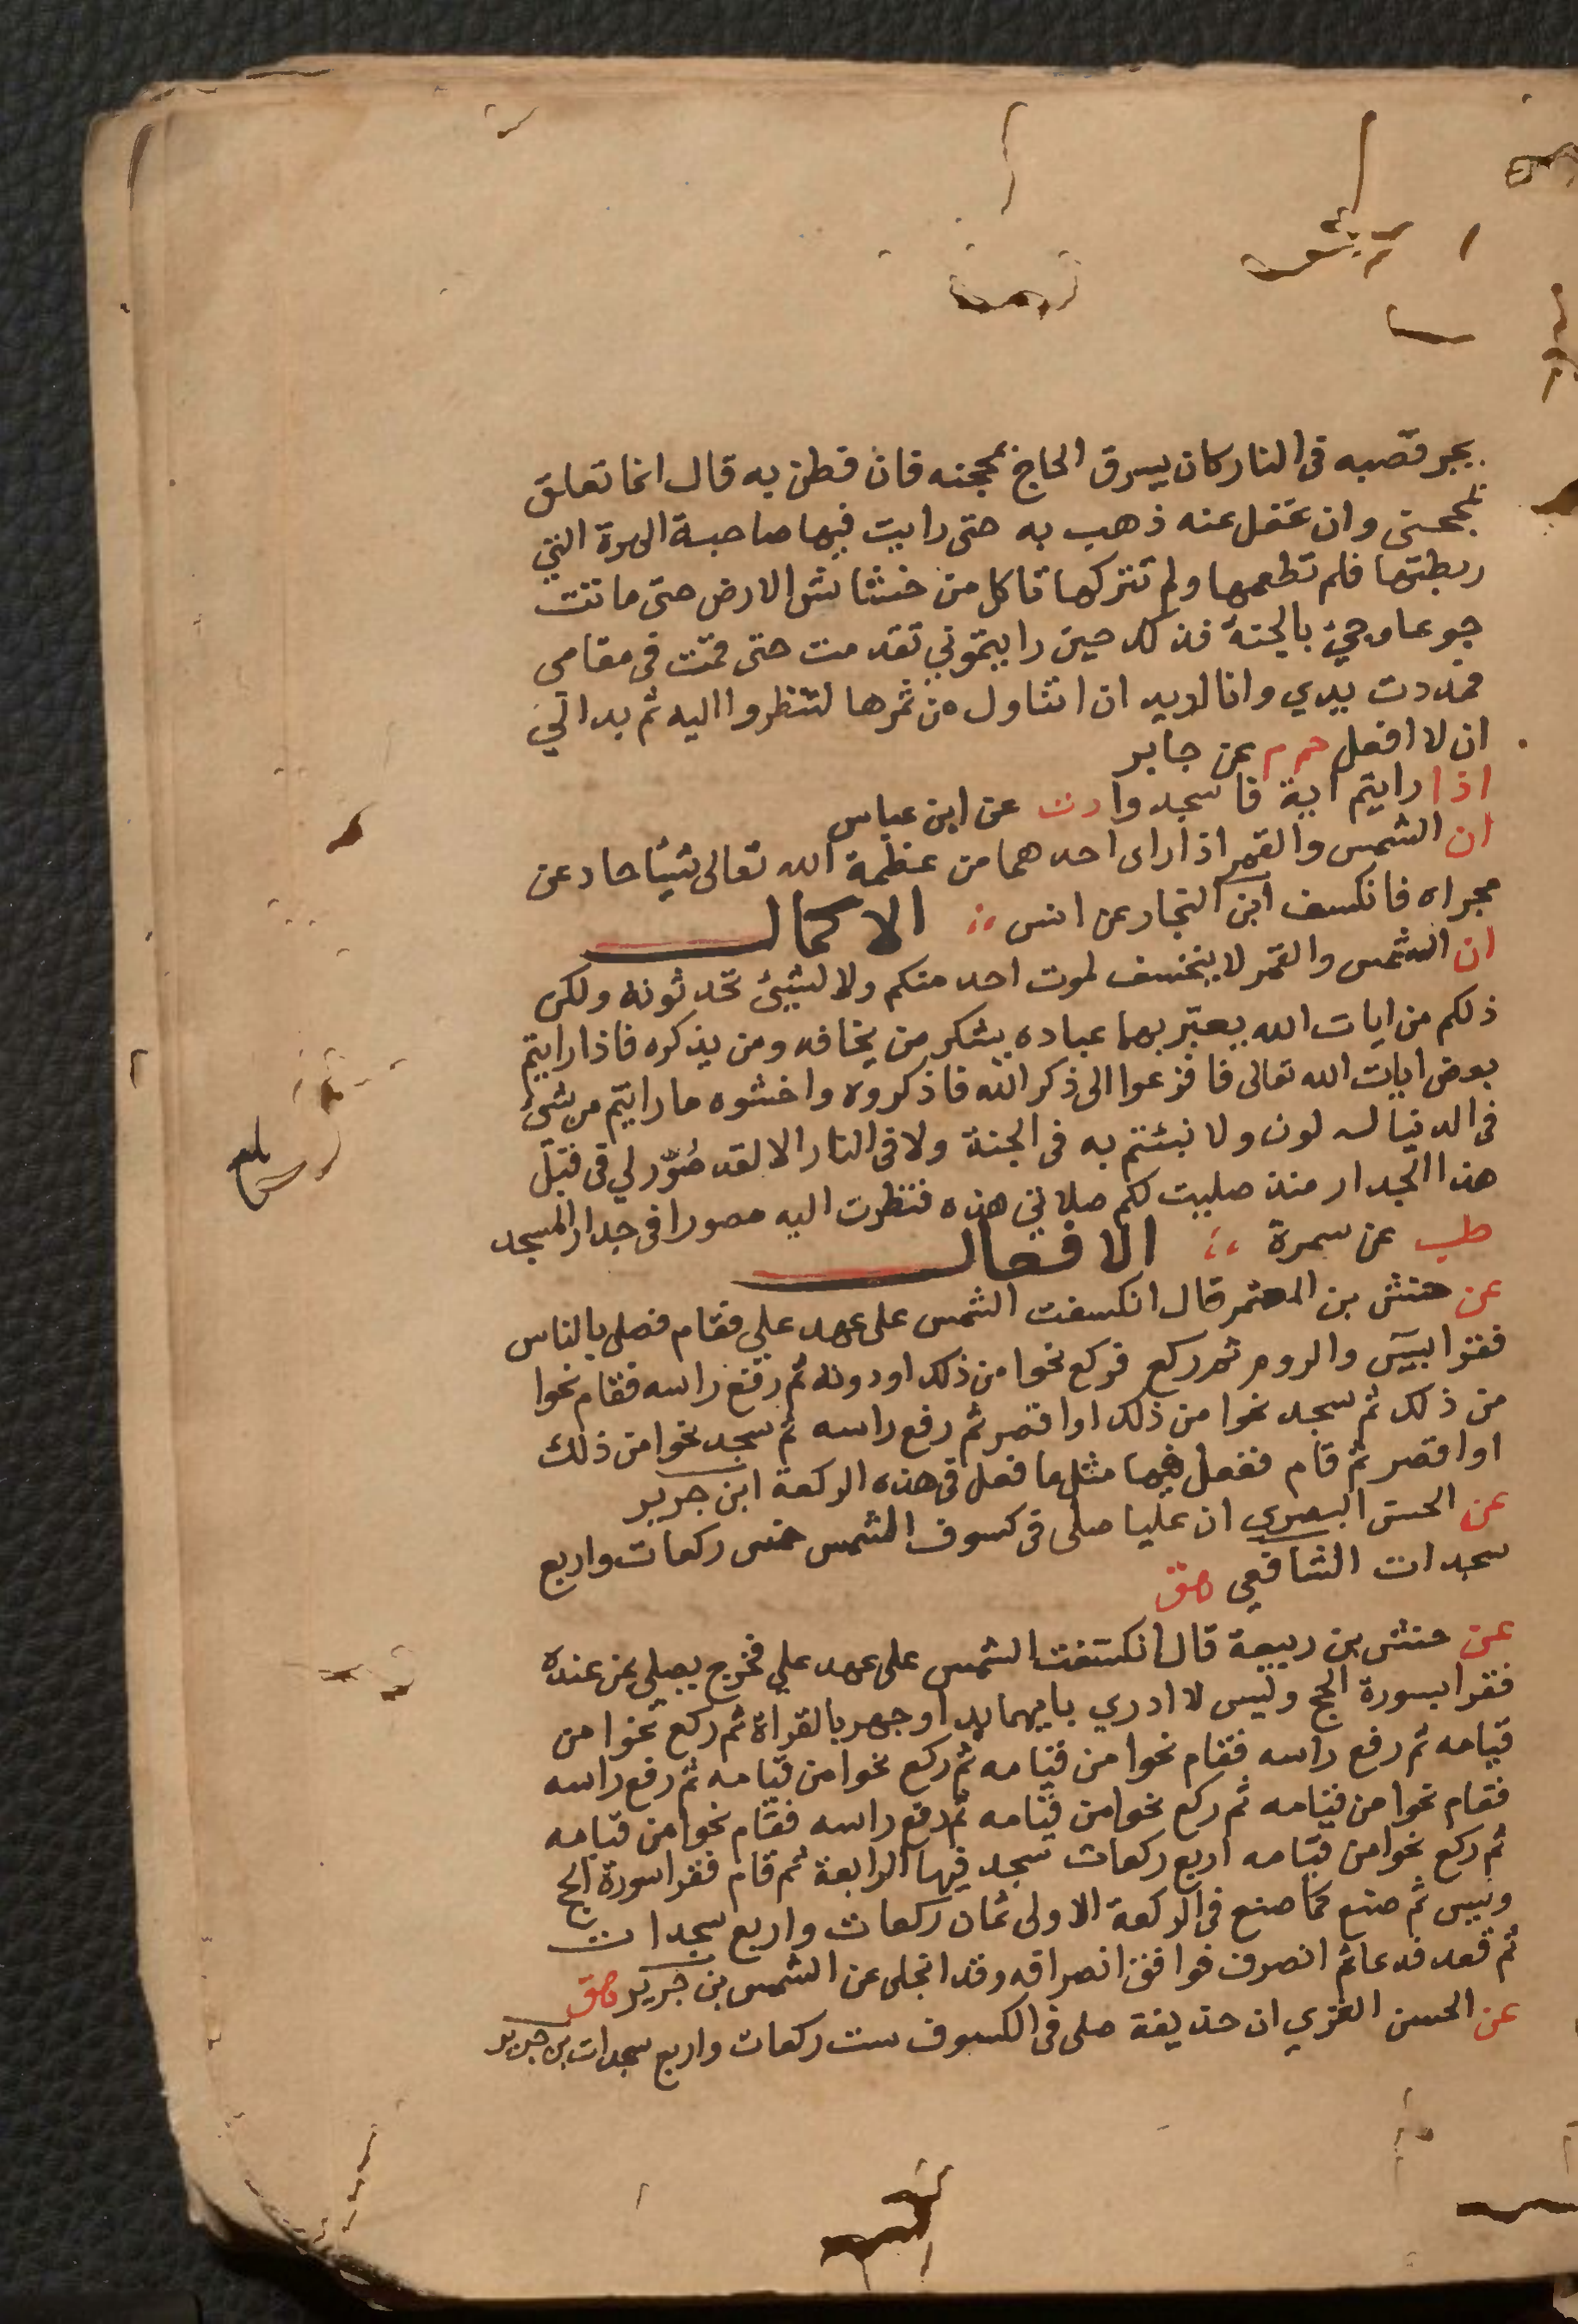 يجر قصبه في النار كان يسرق الحاج بمحجنه فان فطن به قال انما تعلق
بمحجني وان غفل عنه ذهب به حتى رايت فيها صاحبة الهرة التي
ربطتها فلم تطعمها ولم تتركها تاكل من خشاش الارض حتى ماتت
جوعا وجئ بالجنة فذلك حين رايتموني تقدمت حتى قمت في مقامي
فمددت يدي وانا اريد ان اتناول من ثمرها لتنظروا اليه ثم بدا لي
ان لا افعل حم م عن جابر
اذا رايتم اية فاسجدوا د ت عن ابن عباس
ان الشمس والقمر اذا راى احدهما من عظمة الله تعالى شيئا حاد عن
مجراه فانكسف ابن النجار عن انس الاكمال
ان الشمس والقمر لا ينخسف لموت احد منكم ولا لشيئ تحدثونه ولكن
ذلكم من ايات الله يعبّر بهما عباده بشكر من يخافه ومن يذكره فاذا رايتم
بعض ايات الله تعالى فافزعوا الى ذكر الله فاذكروه واخشوه ما رايتم من شئ
في الدنيا له لون ولا نبئتم به في الجنة ولا في النار الا لقد صُوّر لي في قبل
هذا الجدار منذ صليت لكم صلاتي هذه فنظرت اليه مصورا في جدار المسجد
طب عن سمرة الافعال
عن حنش بن المعتمر قال انكسفت الشمس على عهد علي فقام فصلى بالناس
فقرا بيس والروم ثم ركع فركع نحوا من ذلك او دونه ثم رفع راسه فقام نحوا
من ذلك ثم سجد نحوا من ذلك او اقصر ثم رفع راسه ثم سجد نحوا من ذلك
او اقصر ثم قام ففعل فيها مثل ما فعل في هذه الركعة ابن جرير
عن الحسن البصري ان عليا صلى في كسوف الشمس خمس ركعات واربع
سجدات الشافعي هق
عن حنش بن ربيعة قال انكسفت الشمس على عهد علي فخرج يصلي بمن عنده
فقرا بسورة الحج ويس لا ادري بايهما بدا وجهر بالقراة ثم ركع نحوا من
قيامه ثم رفع راسه فقام نحوا من قيامه ثم ركع نحوا من قيامه ثم رفع راسه
فقام نحوا من قيامه ثم ركع نحوا من قيامه ثم رفع راسه فقام نحوا من قيامه
ثم ركع نحوا من قيامه اربع ركعات سجد فيها الرابعة ثم قام فقرا سورة الحج
ويس ثم صنع كما صنع في الركعة الاولى ثمان ركعات واربع سجدات
ثم قعد فدعا ثم انصرف فوافق انصرافه وقد انجلى عن الشمس بن جرير هق
عن الحسن العزي ان حذيفة صلى في الكسوف ست ركعات واربع سجدات بن جرير